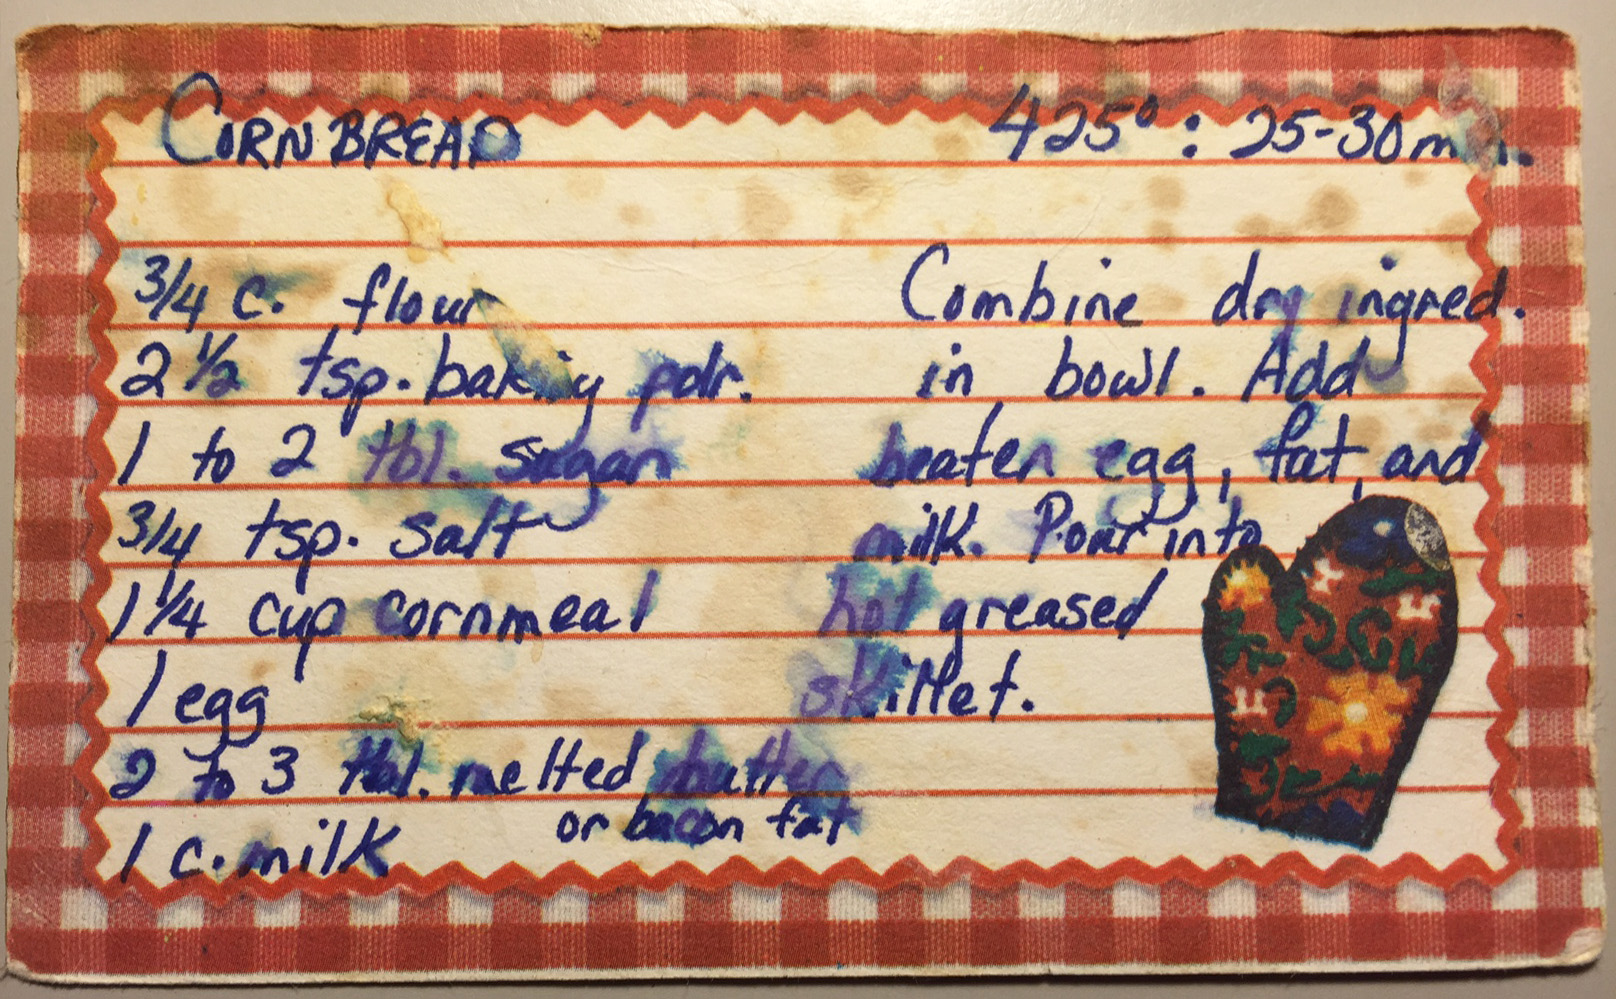 CORNBREAD
425° : 25-30 min.
3/4 c. flour
2 1/2 tsp. baking pdr.
1 to 2 tbl. sugar
3/4 tsp. salt
1 1/4 cup cornmeal
1 egg
2 to 3 tbl. melted butter
or bacon fat
1 c. milk
Combine dry ingred.
in bowl. Add
beaten egg, fat, and
milk. Pour into
hot greased
skillet.